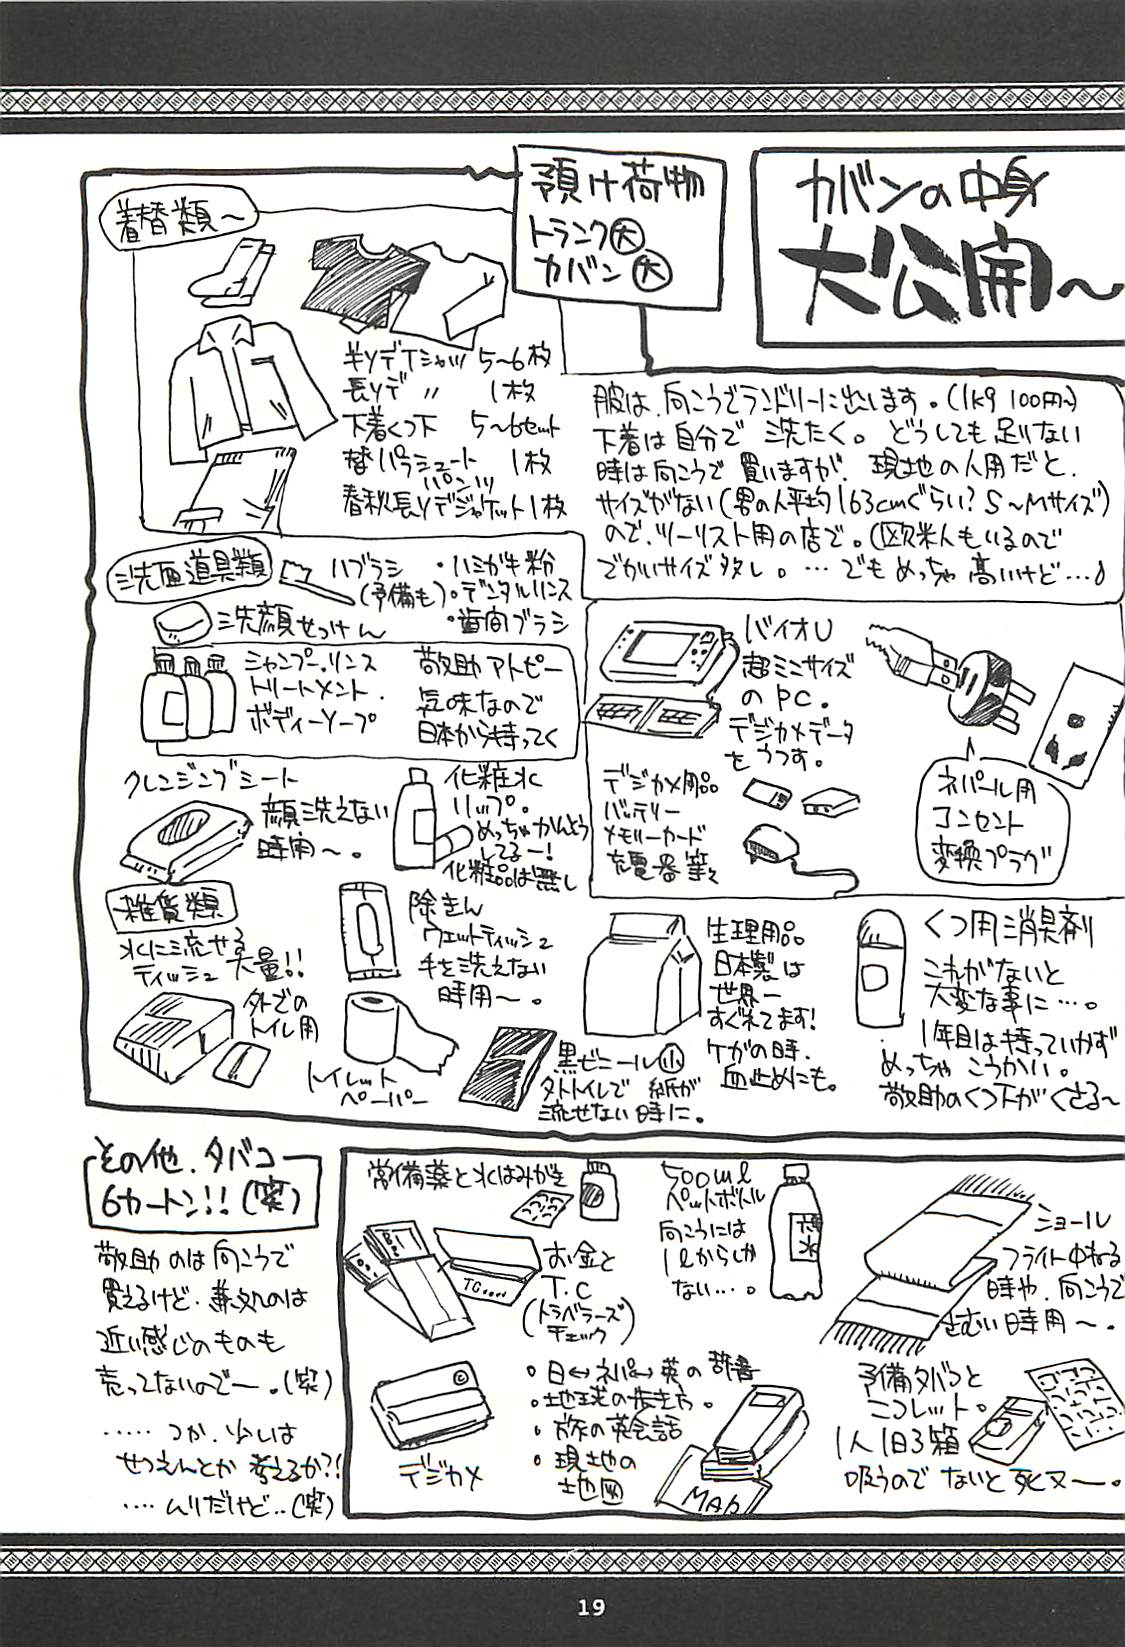 カバンの中身
大公開〜
預け荷物
トランク大
カバン大
着替類〜
半ソデTシャツ 5〜6枚
長ソデ 〃 1枚
下着くつ下 5〜6セット
替パラシュートパンツ 1枚
春秋長ソデジャケット1枚
服は、向こうでランドリーに出します。(1kg 100円〜)
下着は自分で洗たく。どうしても足りない
時は向こうで買いますが、現地の人用だと、
サイズがない(男の人平均163cmぐらい?S〜Mサイズ)
ので、ツーリスト用の店で。(欧米人もいるので
でかいサイズ多し。…でもめっちゃ高いけど…♪
洗面道具類
ハブラシ
(予備も)
・ハミガキ粉
・デンタルリンス
・歯間ブラシ
洗顔せっけん
シャンプー、リンス
トリートメント、
ボディーソープ
敬助アトピー
気味なので
日本から持ってく
クレンジングシート
顔洗えない
時用〜。
化粧水
リップ。
めっちゃかんどう
してるー!
化粧品は無し
バイオU
超ミニサイズ
のPC。
デジカメデータ
をうつす。
デジカメ用品
バッテリー
メモリーカード
充電器等々
ネパール用
コンセント
変換プラグ
雑貨類
水に流せる
ティッシュ大量!!
外での
トイレ用
除きん
ウェットティッシュ
手を洗えない
時用〜。
トイレット
ペーパー
黒ビニール小
外トイレで紙が
流せない時に。
生理用品
日本製は
世界一
すぐれてます!
ケガの時、
血止めにも。
くつ用消臭剤
これがないと
大変な事に…。
1年目は持っていかず
めっちゃこうかい。
敬助のくつ下がくさる〜
その他、タバコ
6カートン!!(笑)
敬助のは向こうで
買えるけど、兼処のは
近い感じのものも
売ってないのでー。(笑)
……つか、少しは
せつえんとか考えるか?!
‥‥ムリだけど‥(笑)
常備薬と水はみがき
お金と
T.C
(トラベラーズ
チェック)
TC
500ml
ペットボトル
向こうには
1lからしか
ない…。
水
ショール
フライト中ねる
時や、向こうで
さむい時用〜。
デジカメ
・日↔ネパ↔英の辞書
・地球の歩き方。
・旅の英会話
・現地の
地図
MAP
予備タバコと
ニコレット。
1人1日3箱
吸うのでないと死ヌ〜。
19